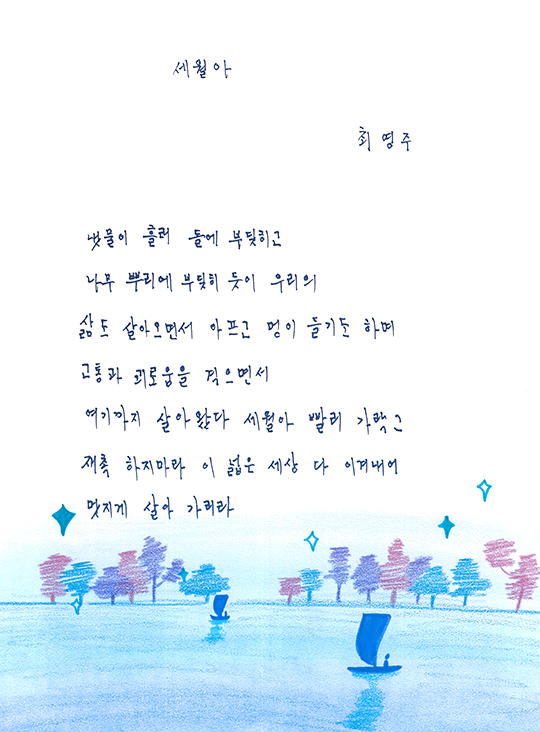 세월아
최영주
냇물이 흘러 돌에 부딪히고
나무 뿌리에 부딪히 듯이 우리의
삶도 살아오면서 아프고 멍이 들기도 하며
고통과 괴로움을 겪으면서
여기까지 살아 왔다 세월아 빨리 가라고
재촉 하지마라 이 넓은 세상 다 이겨내어
멋지게 살아 가리라